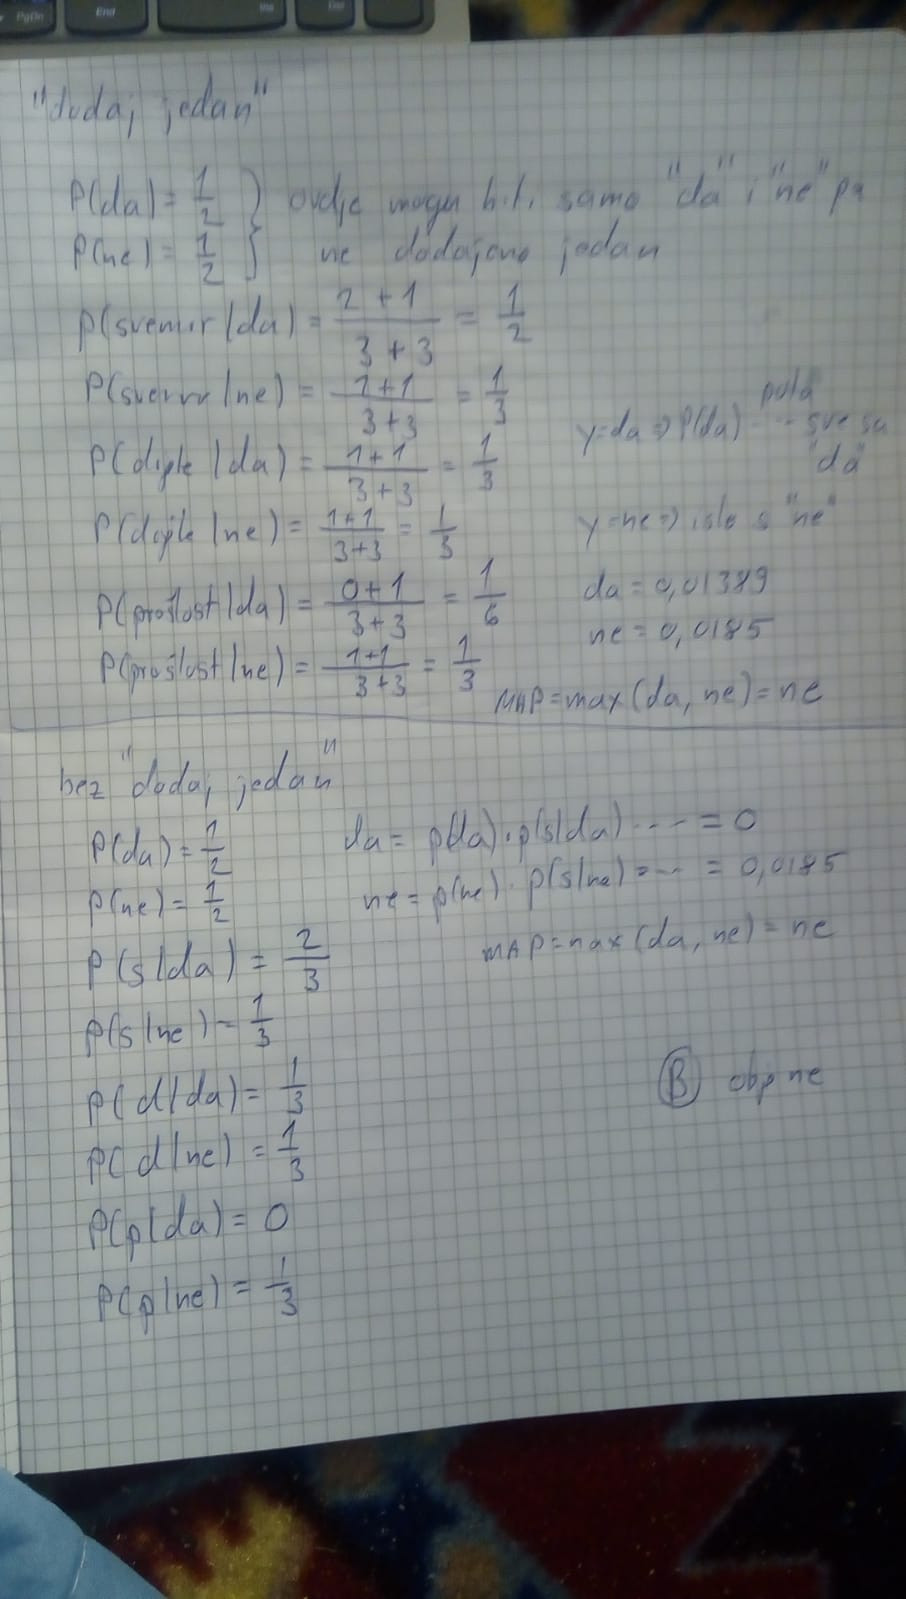 PgDn End Ins Del
"dodaj jedan"
P(da) = 1/2 } ovdje mogu biti samo "da" i "ne" pa
P(ne) = 1/2 } ne dodajemo jedan
P(svemir|da) = 2+1/3+3 = 1/2
P(svemir|ne) = 1+1/3+3 = 1/3
P( |da) = 1+1/3+3 = 1/3
y=da => P(da) ---- sve sa
"da"
P( |ne) = 1+1/3+3 = 1/3
y=ne => isto s "ne"
P(prošlost|da) = 0+1/3+3 = 1/6
da = 0,01389
ne = 0,0185
P(prošlost|ne) = 1+1/3+3 = 1/3
MAP = max(da, ne) = ne
bez "dodaj jedan"
P(da) = 1/2
P(ne) = 1/2
P(s|da) = 2/3
P(s|ne) = 1/3
P(d|da) = 1/3
P(d|ne) = 1/3
P(p|da) = 0
P(p|ne) = 1/3
da = p(da)·p(s|da) ---- = 0
ne = p(ne)·p(s|ne) = --- = 0,0185
MAP = max(da, ne) = ne
B ne